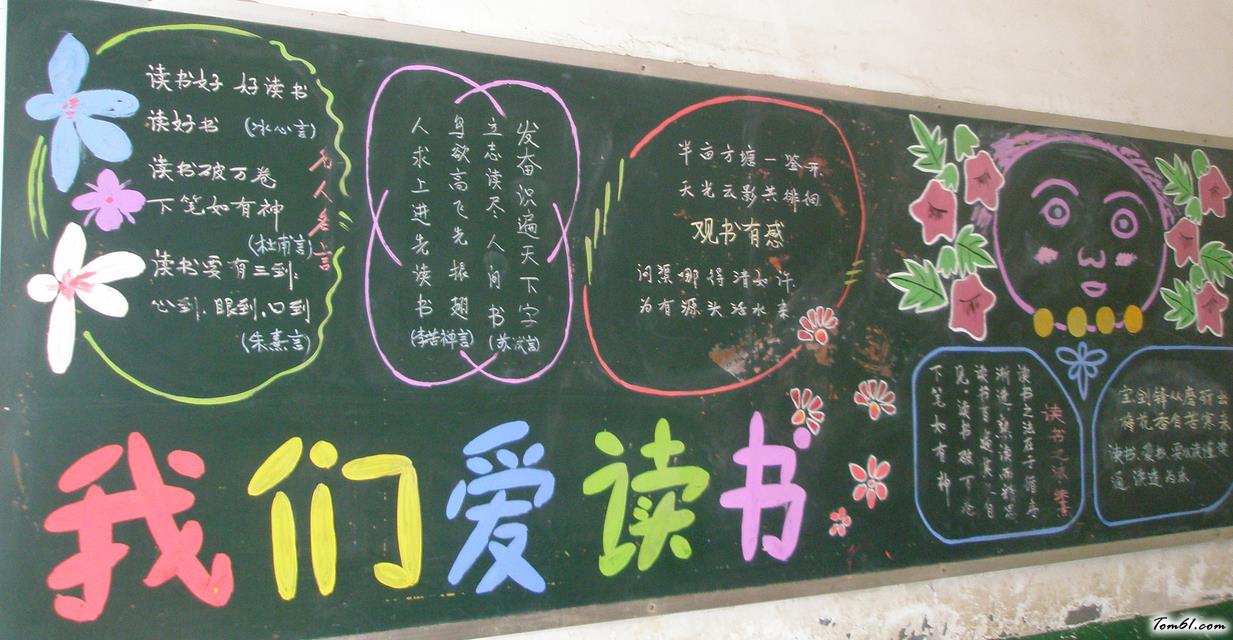 读书好 好读书
读好书 (冰心言)
读书破万卷
下笔如有神
(杜甫言)
读书要有三到:
心到,眼到,口到
(朱熹言)
名人名言
发奋识遍天下字
立志读尽人间书
(苏轼言)
鸟欲高飞先振翅
人求上进先读书
(李苦禅言)
半亩方塘一鉴开
天光云影共徘徊
观书有感
问渠哪得清如许
为有源头活水来
读书之法
读书之法在于循序
渐进,熟读而精思
读书百遍其义自
见,读书破
下笔如有神
宝剑锋从磨砺出
梅花香自苦寒来
读书,爱书,要
我们爱读书
Tom61.com